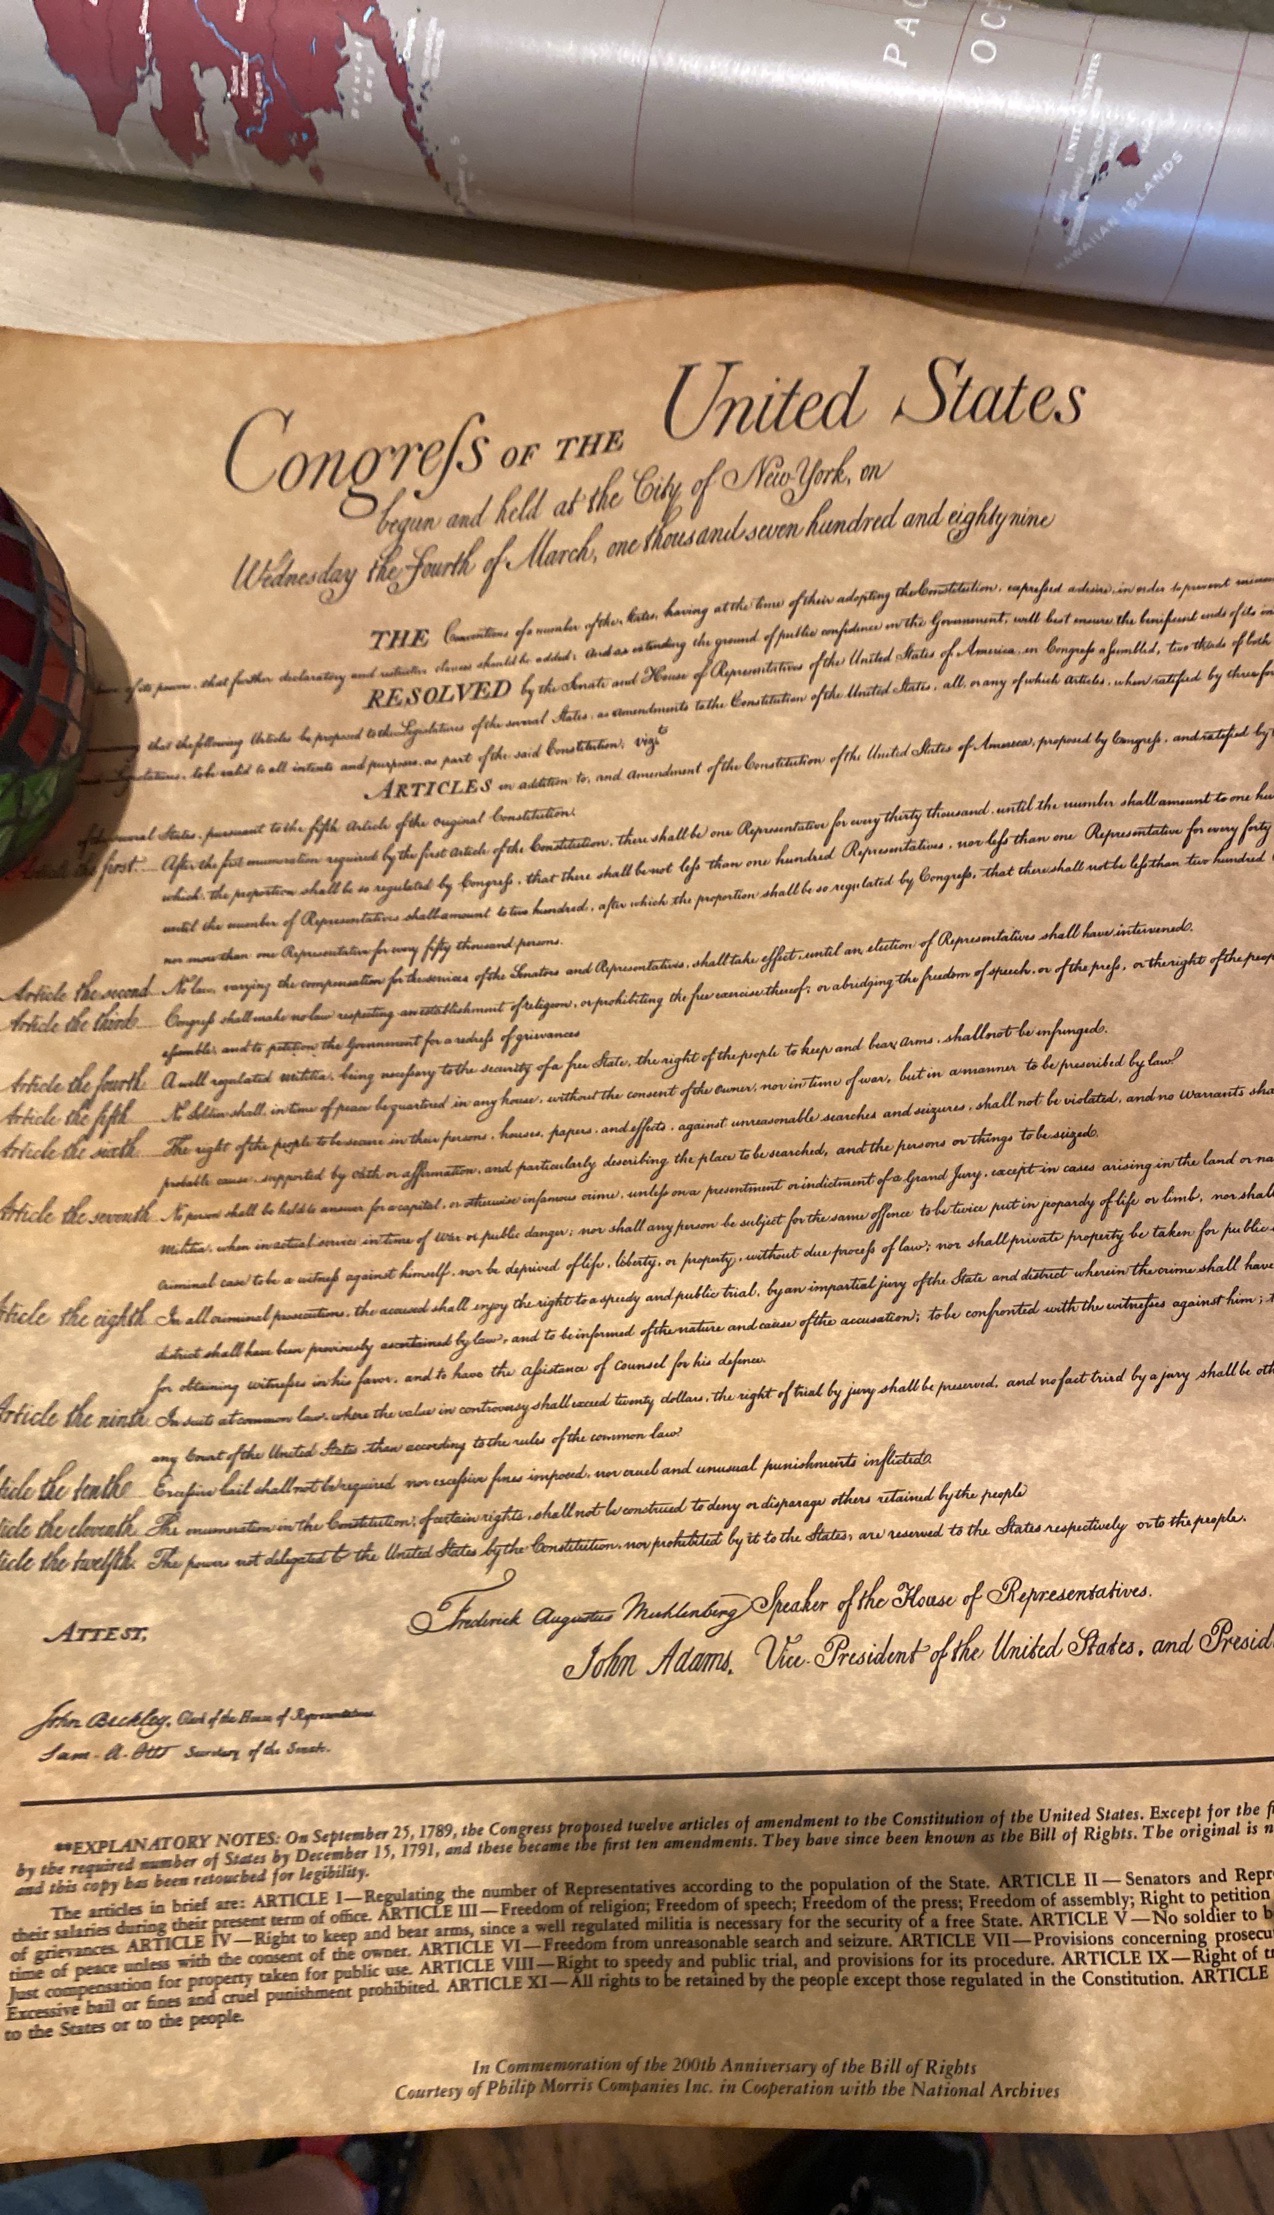 PAC
OC
UNITED STATES
HAWAIIAN ISLANDS
Congreſs OF THE United States
begun and held at the City of New-York, on
Wednesday the fourth of March, one thousand seven hundred and eighty nine
THE Conventions of a number of the States, having at the time of their adopting the Constitution, expreſsed a desire, in order to prevent
of its powers, that further declaratory and restrictive clauses should be added: And as extending the ground of public confidence in the Government, will best ensure the beneficent ends of its
RESOLVED by the Senate and House of Representatives of the United States of America, in Congreſs aſsembled, two thirds of both
that the following Articles be proposed to the Legislatures of the several States, as amendments to the Constitution of the United States, all, or any of which Articles, when ratified by three
to be valid to all intents and purposes, as part of the said Constitution, vizt
ARTICLES in addition to, and amendment of the Constitution of the United States of America, proposed by Congreſs, and ratified by
of the several States, pursuant to the fifth Article of the original Constitution.
first. After the first enumeration required by the first Article of the Constitution, there shall be one Representative for every thirty thousand, until the number shall amount to one
which, the proportion shall be so regulated by Congreſs, that there shall be not leſs than one hundred Representatives, nor leſs than one Representative for every forty
until the number of Representatives shall amount to two hundred, after which the proportion shall be so regulated by Congreſs, that there shall not be leſs than two hundred
nor more than one Representative for every fifty thousand persons.
Article the second No law, varying the compensation for the services of the Senators and Representatives, shall take effect, until an election of Representatives shall have intervened.
Article the third Congreſs shall make no law respecting an establishment of religion, or prohibiting the free exercise thereof; or abridging the freedom of speech, or of the preſs, or the right of the
aſsemble, and to petition the Government for a redreſs of grievances
Article the fourth A well regulated militia, being neceſsary to the security of a free State, the right of the people to keep and bear arms, shall not be infringed.
Article the fifth No Soldier shall, in time of peace be quartered in any house, without the consent of the owner, nor in time of war, but in a manner to be prescribed by law.
Article the sixth The right of the people to be secure in their persons, houses, papers, and effects, against unreasonable searches and seizures, shall not be violated, and no warrants
probable cause, supported by oath or affirmation, and particularly describing the place to be searched, and the persons or things to be seized.
Article the seventh No person shall be held to answer for a capital, or otherwise infamous crime, unleſs on a presentment or indictment of a Grand Jury, except in cases arising in the land or
Militia, when in actual service in time of War or public danger; nor shall any person be subject for the same offence to be twice put in jeopardy of life or limb, nor shall
criminal case to be a witneſs against himself, nor be deprived of life, liberty, or property, without due proceſs of law; nor shall private property be taken for public
Article the eighth In all criminal prosecutions, the accused shall enjoy the right to a speedy and public trial, by an impartial jury of the State and district wherein the crime shall have
district shall have been previously ascertained by law, and to be informed of the nature and cause of the accusation; to be confronted with the witneſses against him;
for obtaining witneſses in his favor, and to have the aſsistance of counsel for his defence.
Article the ninth In suits at common law, where the value in controversy shall exceed twenty dollars, the right of trial by jury shall be preserved, and no fact tried by a jury shall be
any Court of the United States, than according to the rules of the common law
ticle the tenth Exceſsive bail shall not be required nor exceſsive fines imposed, nor cruel and unusual punishments inflicted.
ticle the eleventh The enumeration in the Constitution, of certain rights, shall not be construed to deny or disparage others retained by the people
ticle the twelfth. The powers not delegated to the United States by the Constitution, nor prohibited by it to the States, are reserved to the States respectively or to the people.
Frederick Augustus Muhlenberg Speaker of the House of Representatives.
ATTEST,
John Adams, Vice-President of the United States, and Presid
John Beckley, Clerk of the House of Representatives
Sam. A. Otis Secretary of the Senate.
**EXPLANATORY NOTES: On September 25, 1789, the Congress proposed twelve articles of amendment to the Constitution of the United States. Except for the fi
by the required number of States by December 15, 1791, and these became the first ten amendments. They have since been known as the Bill of Rights. The original is n
and this copy has been retouched for legibility.
The articles in brief are: ARTICLE I—Regulating the number of Representatives according to the population of the State. ARTICLE II—Senators and Repr
their salaries during their present term of office. ARTICLE III—Freedom of religion; Freedom of speech; Freedom of the press; Freedom of assembly; Right to petition
of grievances. ARTICLE IV—Right to keep and bear arms, since a well regulated militia is necessary for the security of a free State. ARTICLE V—No soldier to b
time of peace unless with the consent of the owner. ARTICLE VI—Freedom from unreasonable search and seizure. ARTICLE VII—Provisions concerning prosecu
Just compensation for property taken for public use. ARTICLE VIII—Right to speedy and public trial, and provisions for its procedure. ARTICLE IX—Right of tr
Excessive bail or fines and cruel punishment prohibited. ARTICLE XI—All rights to be retained by the people except those regulated in the Constitution. ARTICLE
to the States or to the people.
In Commemoration of the 200th Anniversary of the Bill of Rights
Courtesy of Philip Morris Companies Inc. in Cooperation with the National Archives